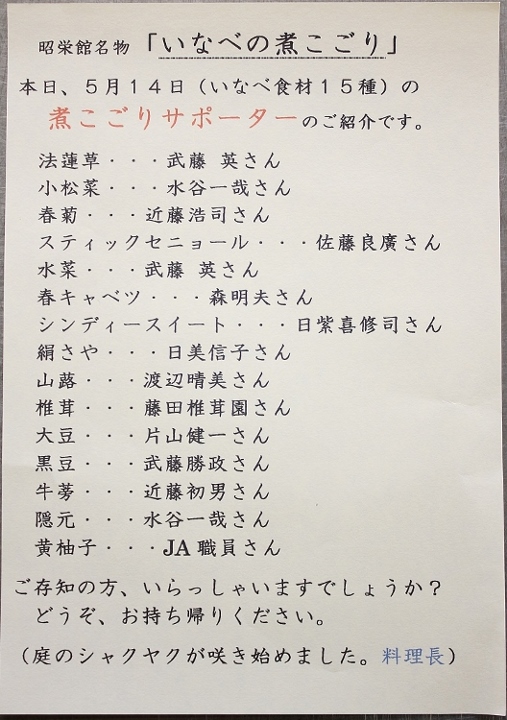 昭栄館名物「いなべの煮こごり」
本日、5月14日（いなべ食材15種）の
煮こごりサポーターのご紹介です。
法蓮草・・・武藤 英さん
小松菜・・・水谷一哉さん
春菊・・・近藤浩司さん
スティックセニョール・・・佐藤良廣さん
水菜・・・武藤 英さん
春キャベツ・・・森明夫さん
シンディースイート・・・日紫喜修司さん
絹さや・・・日美信子さん
山蕗・・・渡辺晴美さん
椎茸・・・藤田椎茸園さん
大豆・・・片山健一さん
黒豆・・・武藤勝政さん
牛蒡・・・近藤初男さん
隠元・・・水谷一哉さん
黄柚子・・・JA職員さん
ご存知の方、いらっしゃいますでしょうか？
どうぞ、お持ち帰りください。
（庭のシャクヤクが咲き始めました。料理長）